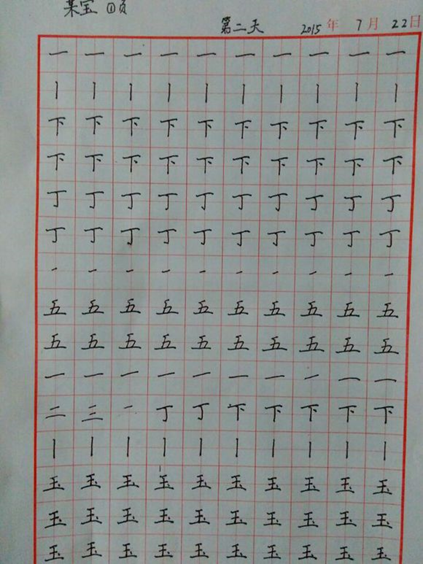 某宝
第二天 2015年7月22日
一一一一一一一一一一
丨丨丨丨丨丨丨丨丨丨
下下下下下下下下下下
下下下下下下下下下下
丁丁丁丁丁丁丁丁丁丁
丁丁丁丁丁丁丁丁丁丁
一一一一一一一一一一
五五五五五五五五五五
五五五五五五五五五五
一一一一一一一一一一
二三一丁丁下下下下下
丨丨丨丨丨丨丨丨丨丨
玉玉玉玉玉玉玉玉玉玉
玉玉玉玉玉玉玉玉玉玉
玉玉玉玉玉玉玉玉玉玉